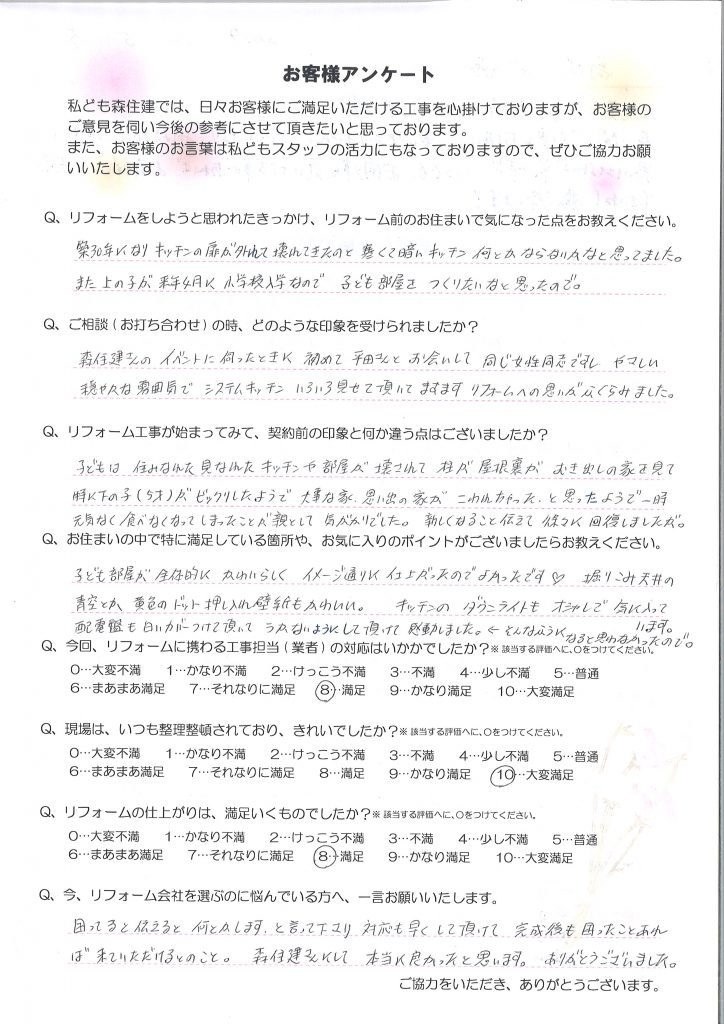 お客様アンケート
私ども森住建では、日々お客様にご満足いただける工事を心掛けておりますが、お客様の
ご意見を伺い今後の参考にさせて頂きたいと思っております。
また、お客様のお言葉は私どもスタッフの活力にもなっておりますので、ぜひご協力お願
いいたします。
Q、リフォームをしようと思われたきっかけ、リフォーム前のお住まいで気になった点をお教えください。
築30年になり キッチンの扉が外れて壊れてきたのと 寒くて暗いキッチン 何とかならないかなと思ってました。
また上の子が 来年4月に 小学校入学なので 子ども部屋を つくりたいなと思ったので。
Q、ご相談(お打ち合わせ)の時、どのような印象を受けられましたか?
森住建さんの イベントに伺ったときに 初めて 平田さんと お会いして 同じ女性同志ですし やさしい
穏やかな雰囲気で システムキッチン いろいろ見せて頂いて ますます リフォームへの思いがふくらみました。
Q、リフォーム工事が始まってみて、契約前の印象と何か違う点はございましたか?
子どもは 住みなれた 見なれた キッチンや部屋が 壊されて 柱が 屋根裏が むき出しの家を見て
特に下の子(5才)がビックリしたようで 大事な家、思い出の家が こわれちゃった、と思ったようで一時
元気なく 食べなくなってしまったことが親として 気がかりでした。 新しくなること伝えて 徐々に回復しましたが。
Q、お住まいの中で特に満足している箇所や、お気に入りのポイントがございましたらお教えください。
子ども部屋が 全体的に かわいらしく イメージ通りに 仕上がったのでよかったです♡ 掘りこみ天井の
青空とか、黄色のドット 押し入れ壁紙もかわいい。 キッチンの ダウンライトも オシャレで 気に入って
います。
配電盤も 白い カバーつけて頂いて うかないようにして頂けて 感動しました。← そんなふうになると思わなかったので。
Q、今回、リフォームに携わる工事担当(業者)の対応はいかがでしたか?※該当する評価へに、○をつけてください。
0…大変不満 1…かなり不満 2…けっこう不満 3…不満 4…少し不満 5…普通
6…まあまあ満足 7…それなりに満足 8…満足 9…かなり満足 10…大変満足
Q、現場は、いつも整理整頓されており、きれいでしたか?※該当する評価へに、○をつけてください。
0…大変不満 1…かなり不満 2…けっこう不満 3…不満 4…少し不満 5…普通
6…まあまあ満足 7…それなりに満足 8…満足 9…かなり満足 10…大変満足
Q、リフォームの仕上がりは、満足いくものでしたか?※該当する評価へに、○をつけてください。
0…大変不満 1…かなり不満 2…けっこう不満 3…不満 4…少し不満 5…普通
6…まあまあ満足 7…それなりに満足 8…満足 9…かなり満足 10…大変満足
Q、今、リフォーム会社を選ぶのに悩んでいる方へ、一言お願いいたします。
困ってると伝えると 何とかします、と言って下さり 対応も早くして頂けて 完成後も困ったことあれ
ば来ていただけるとのこと。 森住建さんにして 本当に良かったと思います。 ありがとうございました。
ご協力をいただき、ありがとうございます。